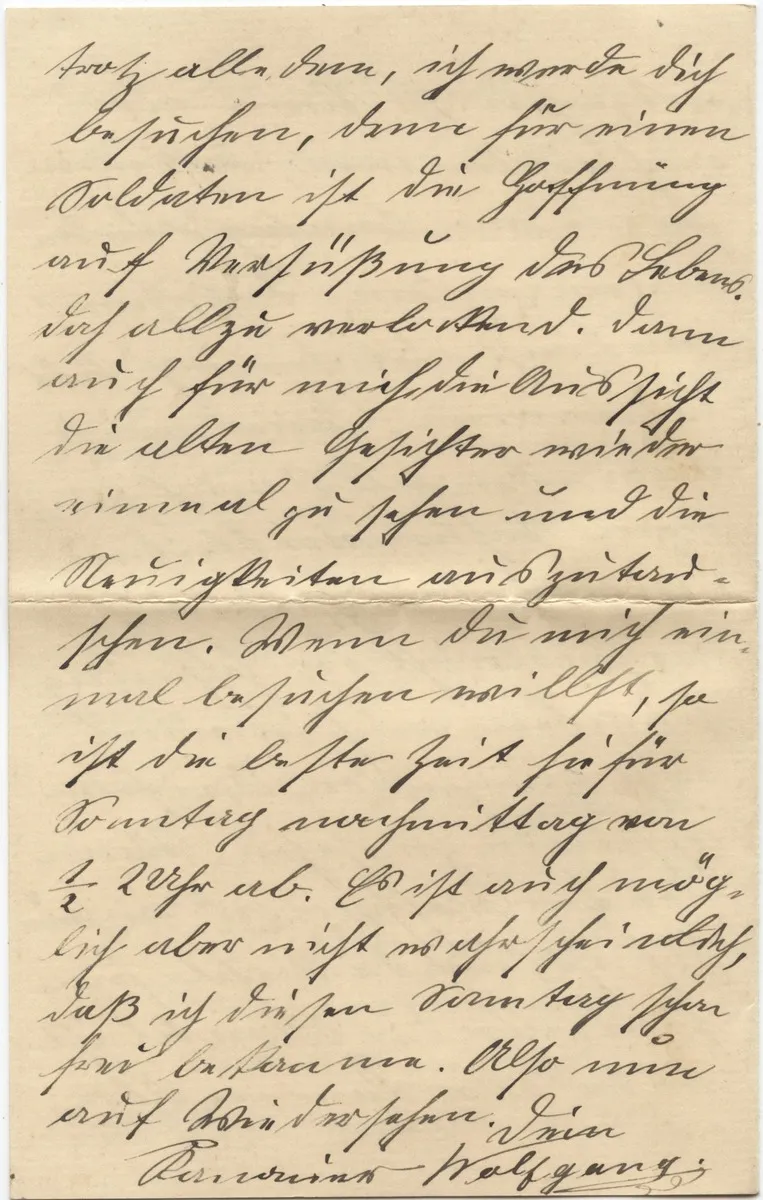 trotz alle dem, ich werde dich
besuchen, denn für einen
Soldaten ist die Hoffnung
auf Versüßung des Lebens
doch allzu verlockend. Dann
auch für mich die Aussicht
die alten Gesichter wieder
einmal zu sehen und die
Neuigkeiten auszutau-
schen. Wenn du mich ein-
mal besuchen willst, so
ist die beste Zeit hiefür
Sonntag nachmittag von
½ 2 Uhr ab. Es ist auch mög-
lich aber nicht wahrscheinlich,
daß ich diesen Sonntag schon
frei bekomme. Also nun
auf Wiedersehen. Dein
Kanonier Wolfgang.